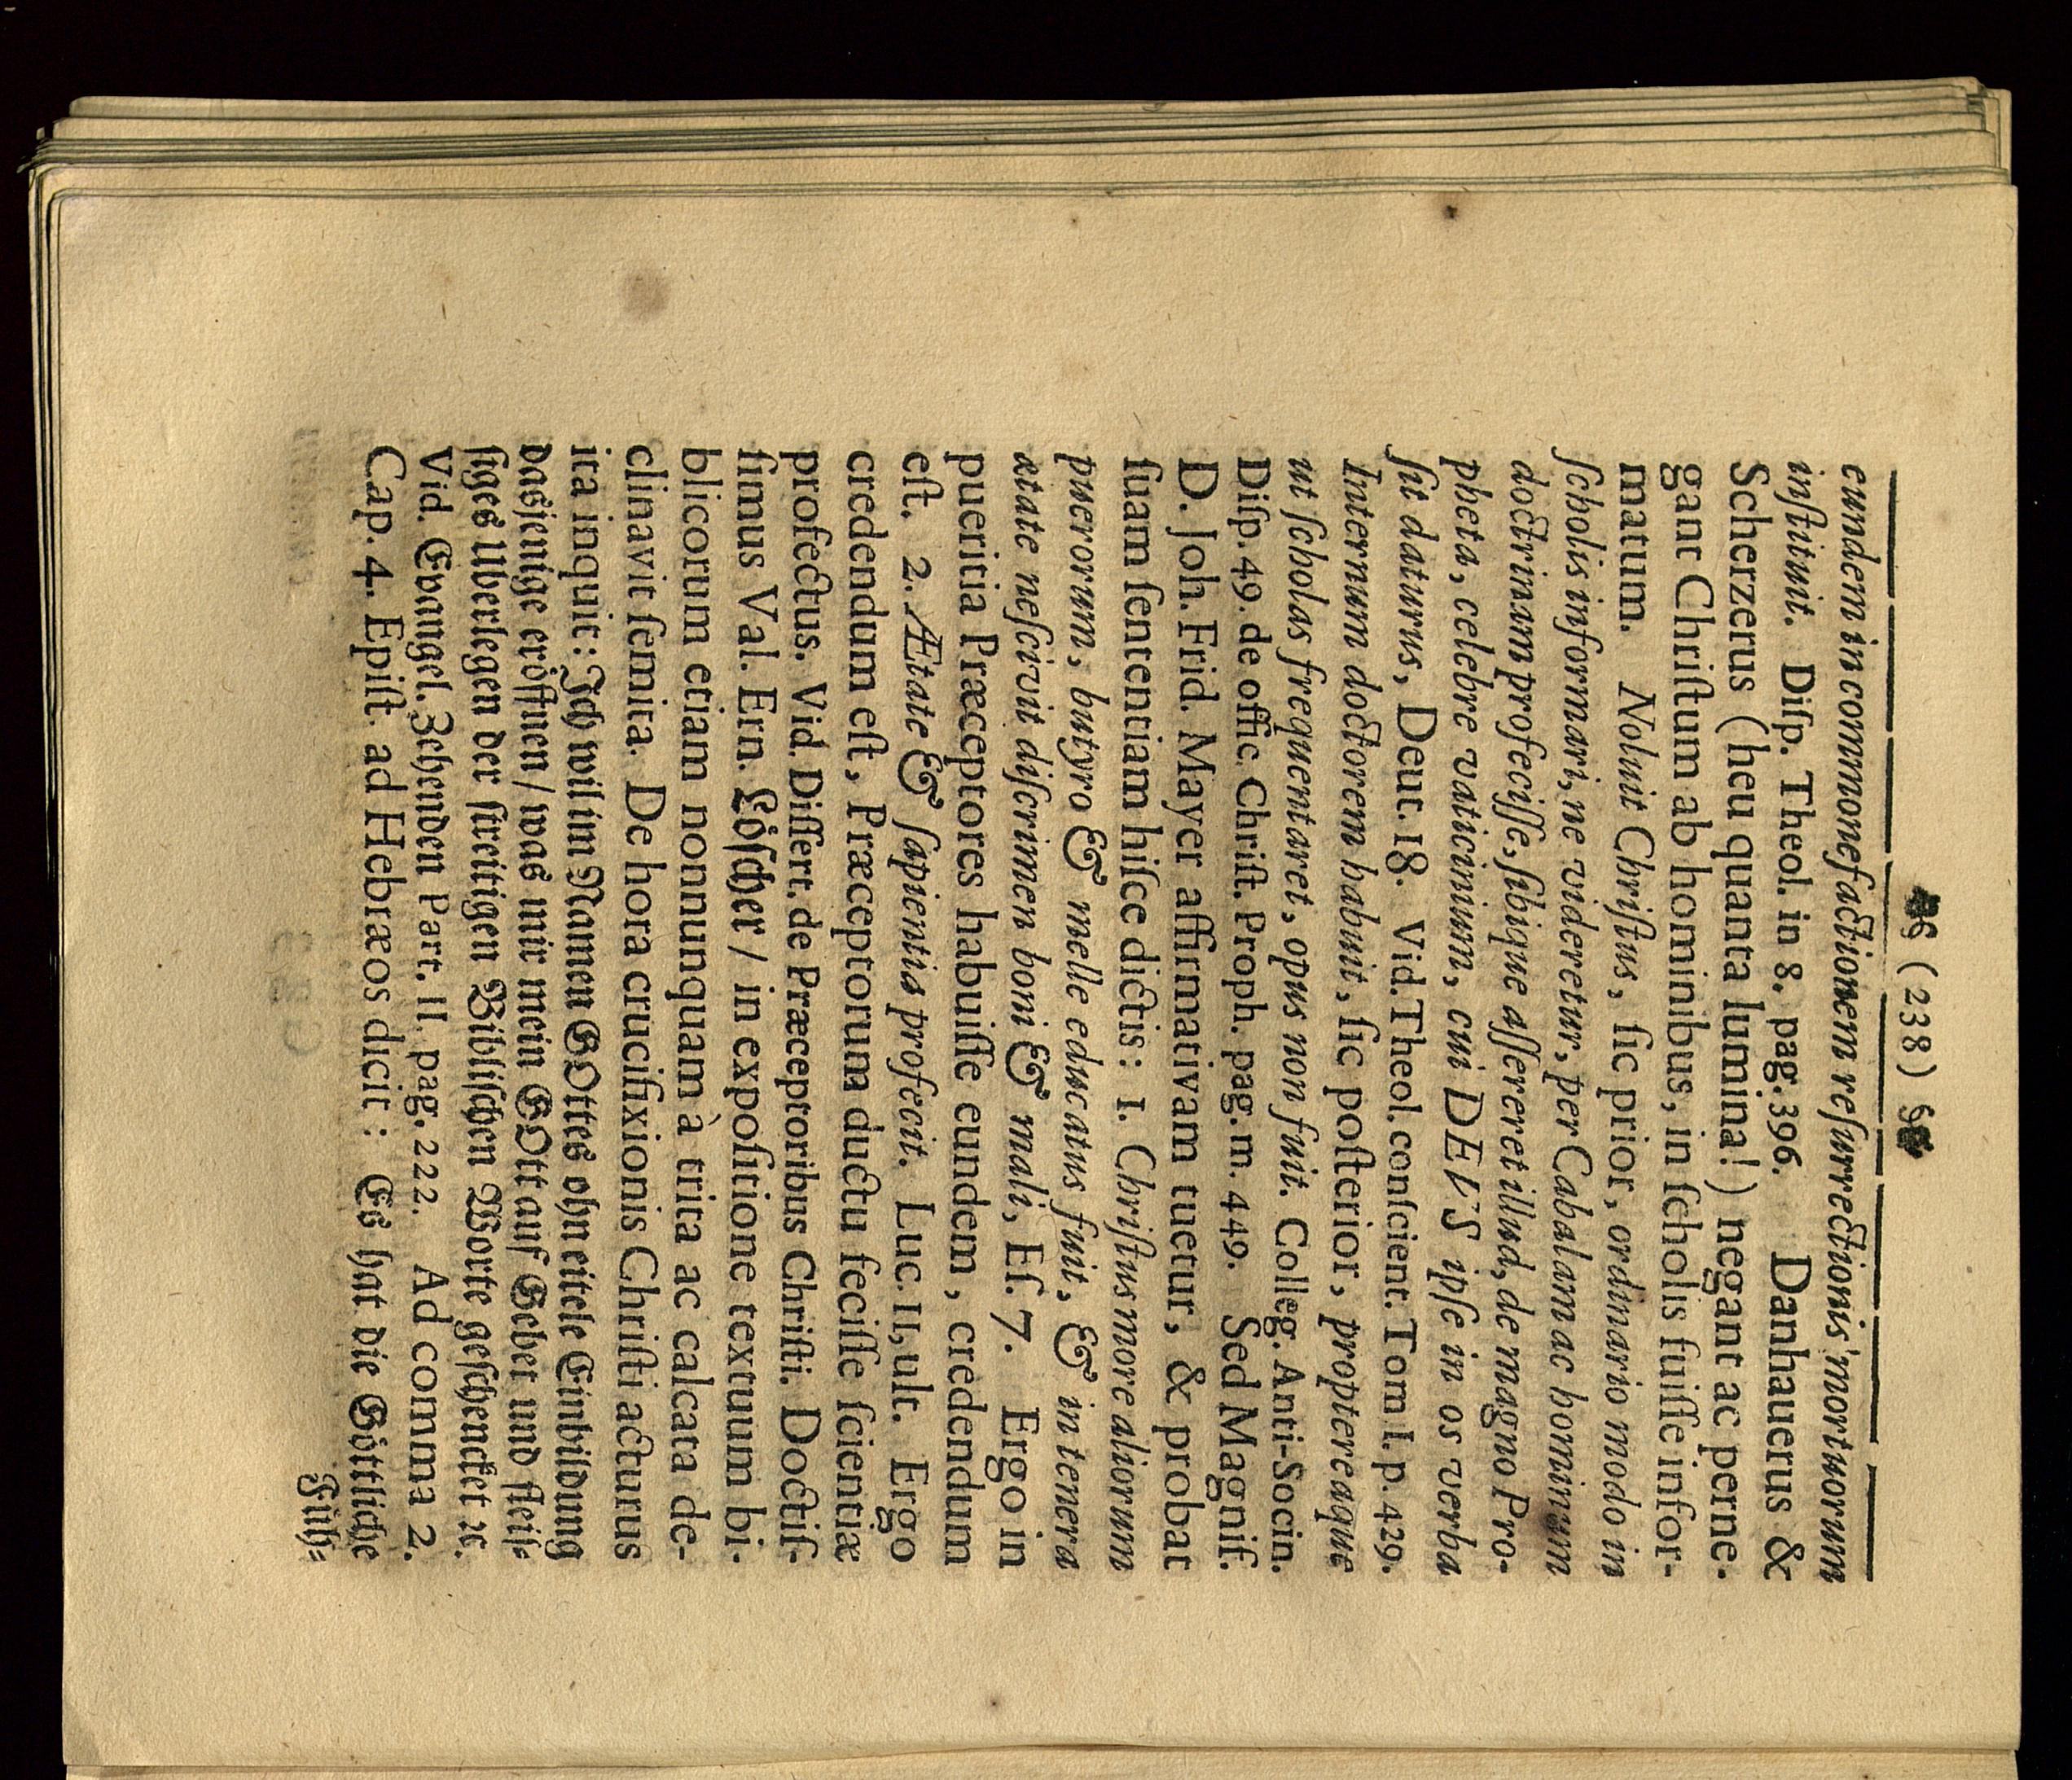 ( 238 )
eundem in commonefactionem resurrectionis mortuorum
instituit. Disp. Theol. in 8. pag. 396. Danhauerus &
Scherzerus (heu quanta lumina!) negant ac perne-
gant Christum ab hominibus, in scholis fuisse infor-
matum. Noluit Christus, sic prior, ordinario modo in
scholis informari, ne videretur, per Cabalam ac hominum
doctrinam profecisse, sibique assereret illud, de magno Pro-
pheta, celebre vaticinium, cui DEUS ipse in os verba
sit daturus, Deut. 18. Vid. Theol. conscient. Tom. I. p. 429.
Internum doctorem habuit, sic posterior, propterea que
ut scholas frequentaret, opus non fuit. Colleg. Anti-Socin.
Disp. 49. de offic. Christ. Proph. pag. m. 449. Sed Magnif.
D. Joh. Frid. Mayer affirmativam tuetur, & probat
suam sententiam hisce dictis: 1. Christus more aliorum
puerorum, butyro & melle educatus fuit, & in tenera
ætate nescivit discrimen boni & mali, Es. 7. Ergo in
pueritia Præceptores habuisse eundem, credendum
est. 2. Ætate & sapientia profecit. Luc. II, ult. Ergo
credendum est, Præceptorum ductu fecisse scientiæ
profectus. Vid. Dissert. de Præceptoribus Christi. Doctis-
simus Val. Ern. Löscher / in expositione textuum bi-
blicorum etiam nonnunquam à trita ac calcata de-
clinavit semita. De hora crucifixionis Christi acturus
ita inquit: Ich wil im Namen GOttes ohn eitele Einbildung
dasjenige eröffnen / was mir mein GOtt auf Gebet und fleis-
siges Uberlegen der streitigen Biblischen Worte geschencket ꝛc.
Vid. Evangel. Zehenden Part. II. pag. 222. Ad comma 2.
Cap. 4. Epist. ad Hebræos dicit: Es hat die Göttliche
Füh-